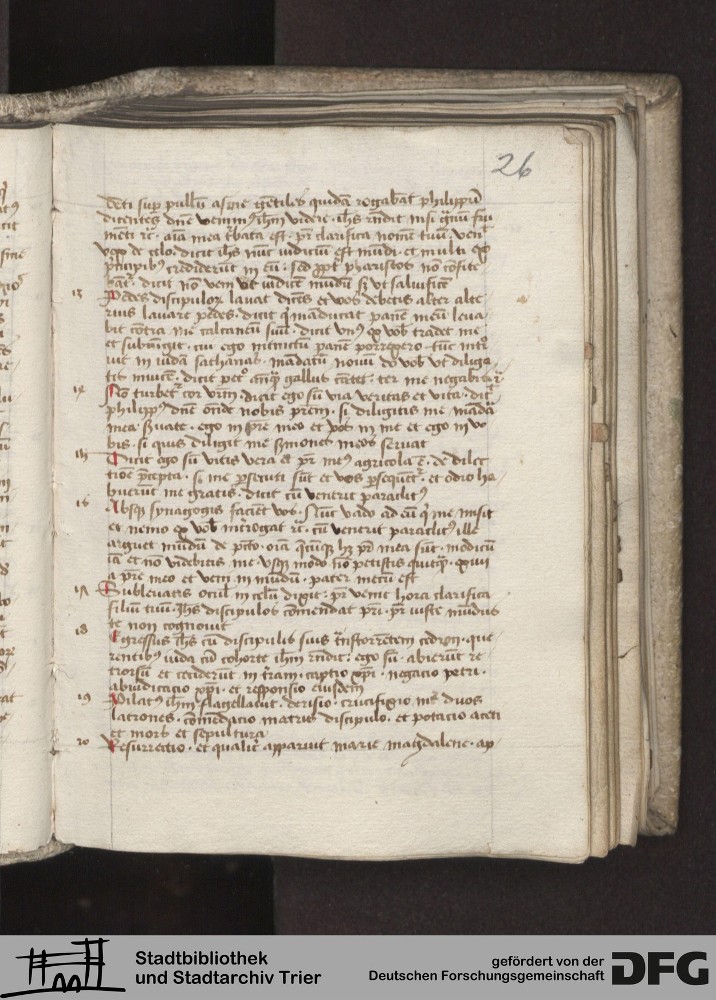 26
denti sup pullū asine gētiles quidā rogabāt philippū
dicentes dn̄e volum9 ihm videre · ihs rn̄dit nisi gnū fru
menti rc̄ · aīa mea tᵇbata est · pr̄ clarifica nomē tuū · venit
vox de celo · dicit ihs nūc iudiciū est mūdi · et multi ex
pncipib9 crediderūt in eū · sed ppt̄ phariseos nō cōfite
bāt · dicit nō veni vt iudicē mūdū sꝫ vt saluificē
13 Pedes discipulor lauat dicēs et vos debetis alter alte
rius lauare pedes · dicit q māducat panē meū leua
bit cōtra me calcaneū suū · dicit vn9 ex vob tradet me
et subiūgit · cui ego intinctū panē porrexero · tūc intᵒi
uit in iudā sathanas · mādatū nouū do vob vt diliga
tis inuicē · dicit pet° anq gallus cātet · ter me negabis
14 Nō turbet cor vrm̄ · dicit ego sū via veritas et vita · dic̄
philipp9 dn̄e onde nobis prēm · si diligitis me mādā
mea suate · ego in pre meo et vos in me et ego in vo
bis · si quis diligit me smones meos seruat
15 Dicit ego sū vitis vera et pr̄ me9 agricola ē · de dilec
tiōe pcepta · si me psecuti sūt et vos psequēt · et odio ha
buerūt me gratis · dicit cū venerit paraclit9
16 Absq synagogis faciēt vos · Nūc vado ad eū q me misit
et nemo ex vob introgat rc̄ · cū venerit paraclit9 ille
arguet mūdū de pctō · oīa qcūqꝫ hꝫ pr̄ mea sūt · modicū
iā et nō videbitis me · vsqꝫ modo nō petistis quicqꝫ · exiui
a pre meo et veni in mūdū · pater mecū est
17 Subleuatis oculis in celū dixit · pr̄ venit hora clarifica
filiū tuū · Ihs discipulos cōmendat pri · pr̄ iuste mūdus
te non cognouit
18 Egressus ihs cū discipulis suis tnstorrētem cedron · que
rentib9 iuda cū cohorte ihm rn̄dit · ego sū · abierūt re
trorsū et ceciderūt in tram · captio xpi · negacio petri ·
abiudicacio xpi · et responsio eiusdem
19 Pilat9 ihm flagellauit · derisio · crucifixio int duos
latrones · cōmēdacio matris discipulo · et potacio aceti
et mors et sepultura
20 Resurrectio · et qualit apparuit marie magdalene · ap
Stadtbibliothek
und Stadtarchiv Trier
gefördert von der
Deutschen Forschungsgemeinschaft
DFG